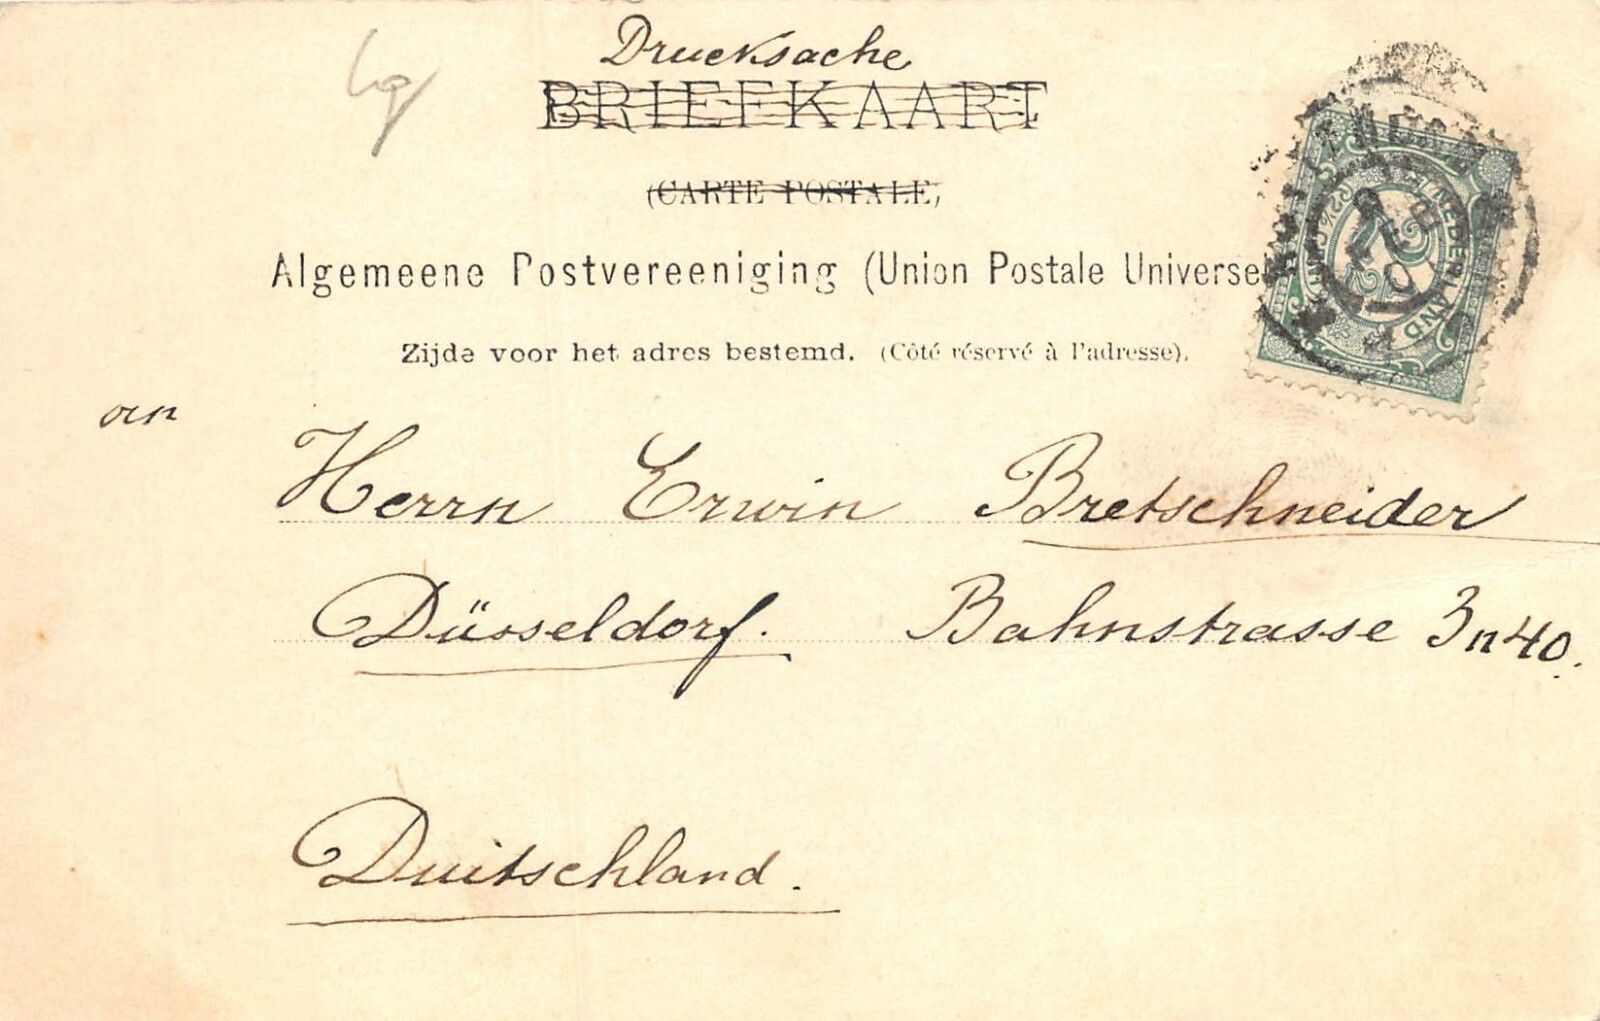 Drucksache
BRIEFKAART
(CARTE POSTALE)
Algemeene Postvereeniging (Union Postale Universel
Zijde voor het adres bestemd. (Côté réservé à l'adresse).
NEDERLAND
an
Herrn Erwin Bretschneider
Düsseldorf. Bahnstrasse 3n40.
Duitschland.